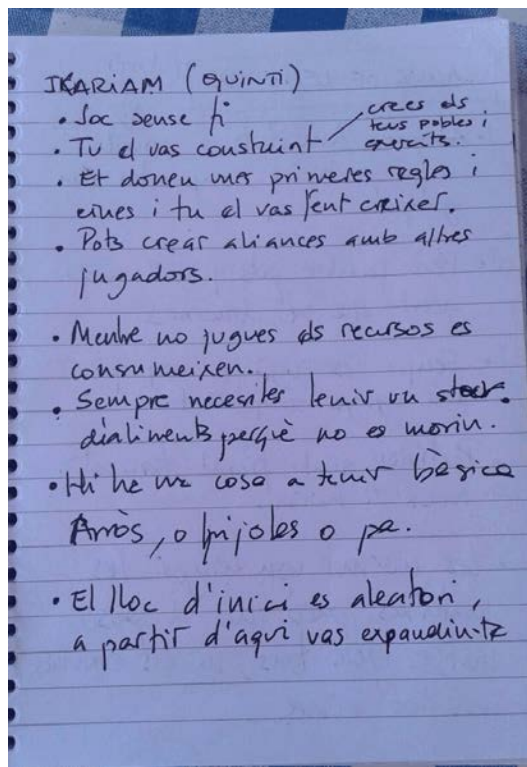 IKARIAM (QUINTI)
• Joc sense fi
• Tu el vas construint
crees els
teus pobles i
exercits.
• Et donen unes primeres regles i
eines i tu el vas fent créixer.
• Pots crear aliances amb altres
jugadors.
• Mentre no jugues els recursos es
consumeixen.
• Sempre necesites tenir un stock
d'aliments perquè no es morin.
• Hi ha una cosa a tenir bàsica
Arròs, o frijoles o pa.
• El lloc d'inici es aleatori,
a partir d'aquí vas expandint-te